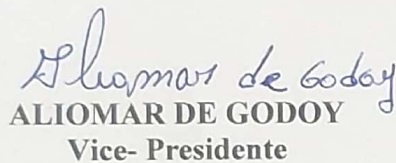 Aliomar de Godoy
ALIOMAR DE GODOY
Vice- Presidente